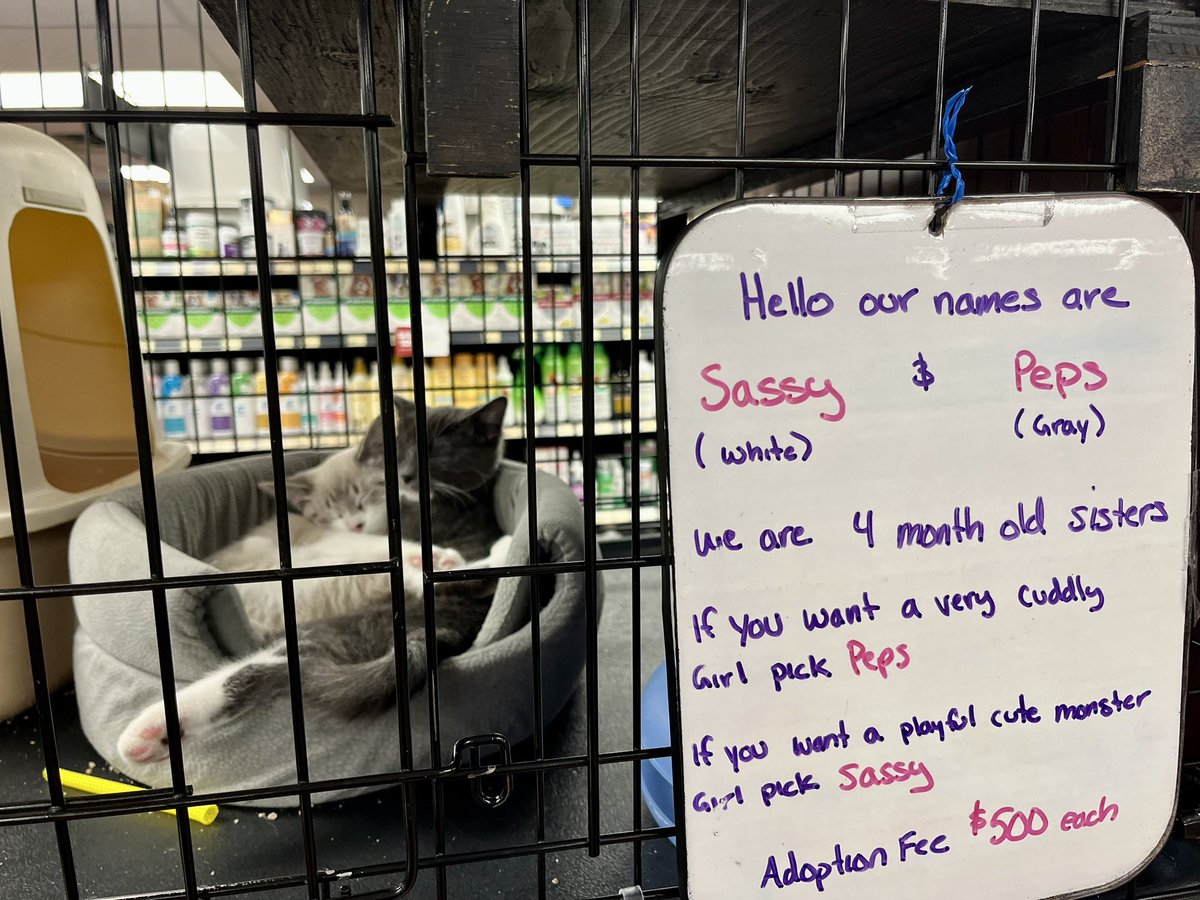 Hello our names are
Sassy & Peps
(white) (Gray)
we are 4 month old sisters
If you want a very cuddly
Girl pick Peps
If you want a playful cute monster
Girl pick Sassy
Adoption Fee $500 each